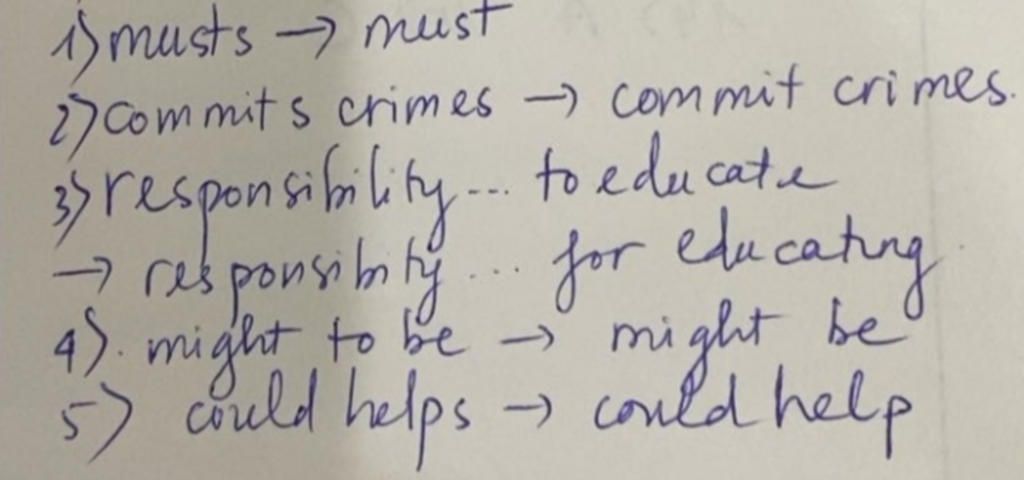 1) musts → must
2) commits crimes → commit crimes.
3) responsibility... to educate
→ responsibity... for educating
4). might to be → might be
5) could helps → could help